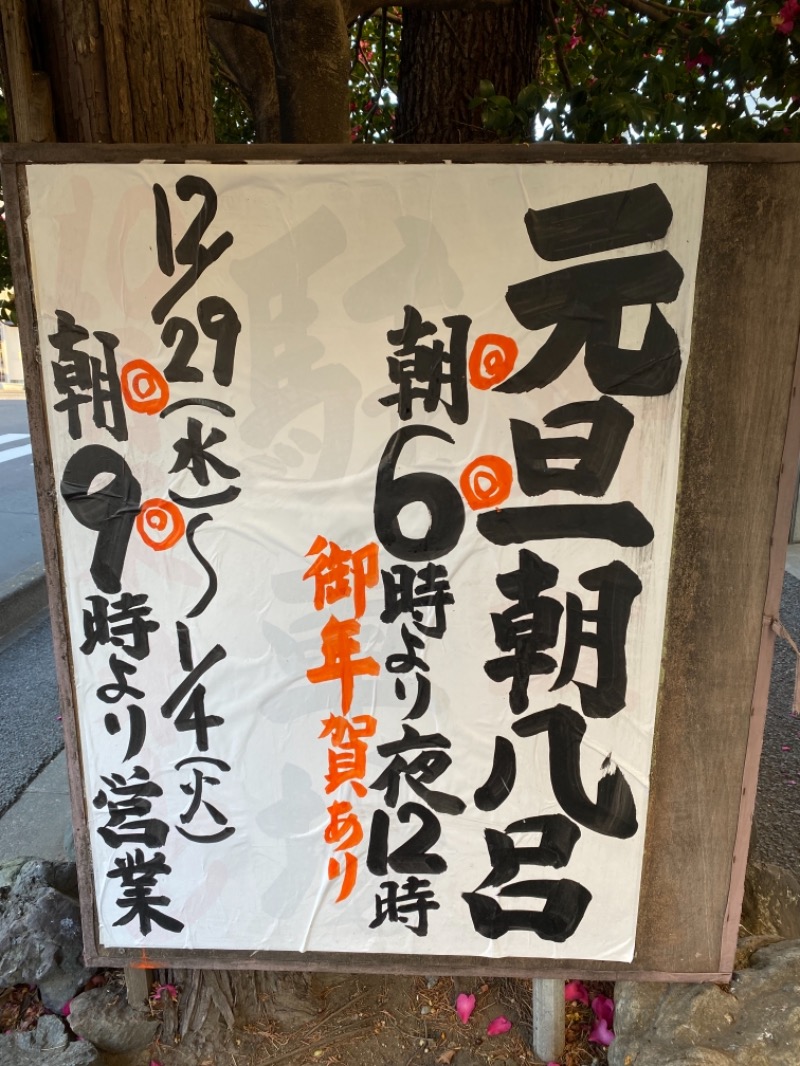 元旦朝八呂
朝6時より夜12時
御年賀あり
12/29(水)〜1/4(火)
朝9時より営業